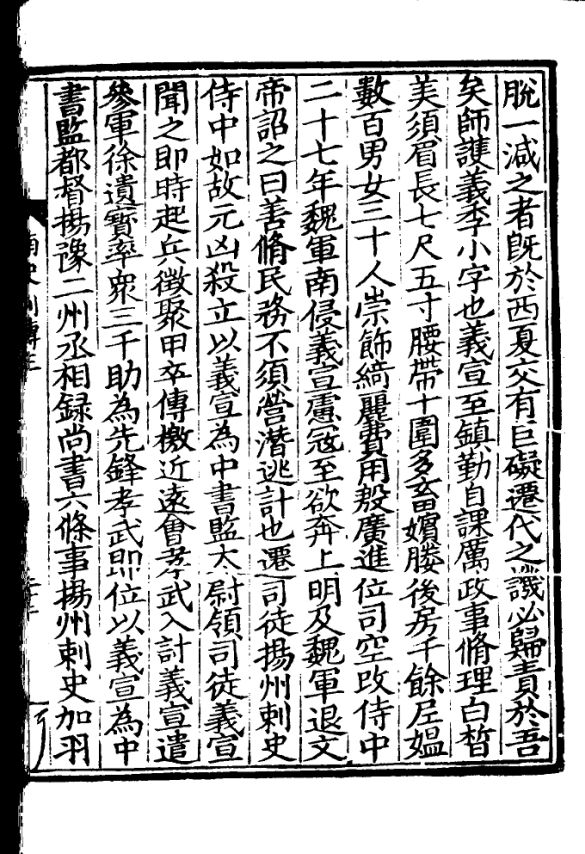 脫一減之者旣於西夏交有巨礙遷代之譏必歸責於吾
矣師護義季小字也義宣至鎮勤自課厲政事脩理白皙
美須眉長七尺五寸腰帶十圍多畜嬪媵後房千餘尼媼
數百男女三十人崇飾綺麗費用殷廣進位司空改侍中
二十七年魏軍南侵義宣慮寇至欲奔上明及魏軍退文
帝詔之曰善脩民務不須營潛逃計也遷司徒揚州刺史
侍中如故元凶殺立以義宣為中書監太尉領司徒義宣
聞之即時起兵徵聚甲卒傳檄近遠會孝武入討義宣遣
參軍徐遺寳率衆三千助為先鋒孝武即位以義宣為中
書監都督揚豫二州丞相録尚書六條事揚州刺史加羽
南史列傳三